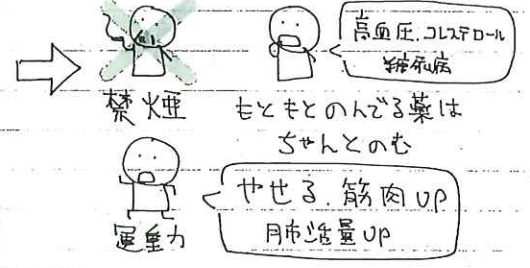 高血圧.コレステロール
糖尿病
禁煙
もともとのんでる薬は
ちゃんとのむ
やせる.筋肉UP
肺活量UP
運動